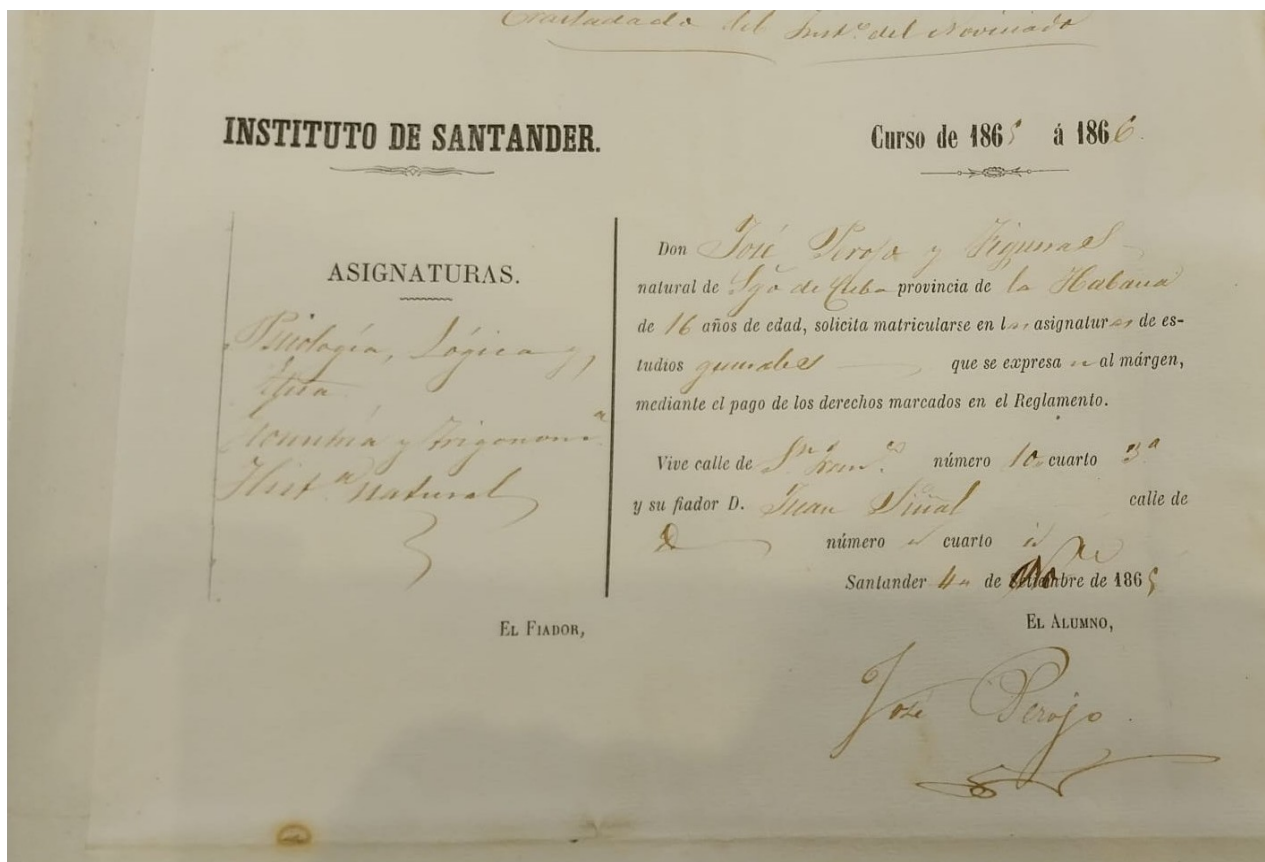 Trasladado del Inst.º del Noviciado
INSTITUTO DE SANTANDER.
Curso de 1865 á 1866.
ASIGNATURAS.
Psicología, Lógica y
Ética
Geometría y Trigonom.ª
Hist.ª Natural
Don José Perojo y Figueras
natural de Sgo de Cuba provincia de la Habana
de 16 años de edad, solicita matricularse en las asignaturas de es-
tudios generales que se expresan al márgen,
mediante el pago de los derechos marcados en el Reglamento.
Vive calle de Sn Franco número 10 cuarto 3ª
y su fiador D. Juan calle de
número id cuarto id
Santander 4 de de 1865
EL FIADOR,
EL ALUMNO,
José Perojo